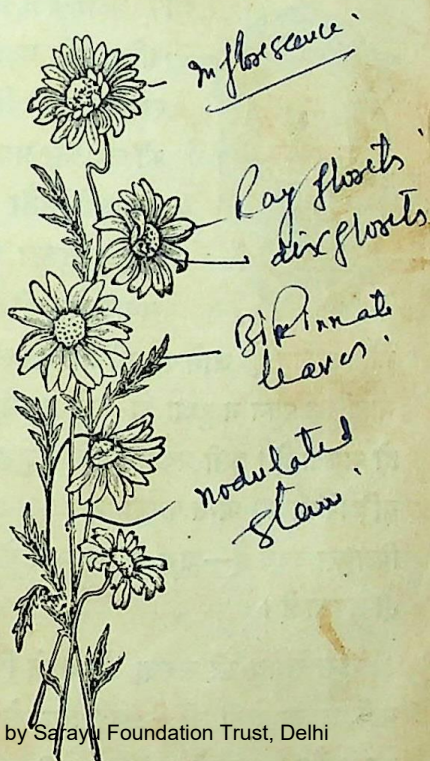 Inflorescence.
Ray florets
disc florets
Bipinnate
leaves.
nodulated
stem.
by Sarayu Foundation Trust, Delhi